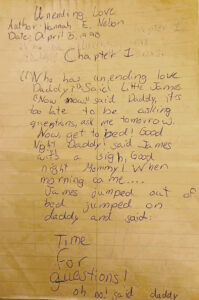 Unending Love
Author: Hannah E. Nelson
Date: April 3, 1998
Chapter 1
"Who has unending love
Daddy?" Said Little James
"Now now" said Daddy, it's
too late to be asking
questions, ask me tomorrow.
Now get to bed! Good
Night Daddy! said James
with a sigh, Good
night Mommy! When
morning came....
James jumped out of
bed jumped on
daddy and said:
Time
For
questions!
oh no! said daddy